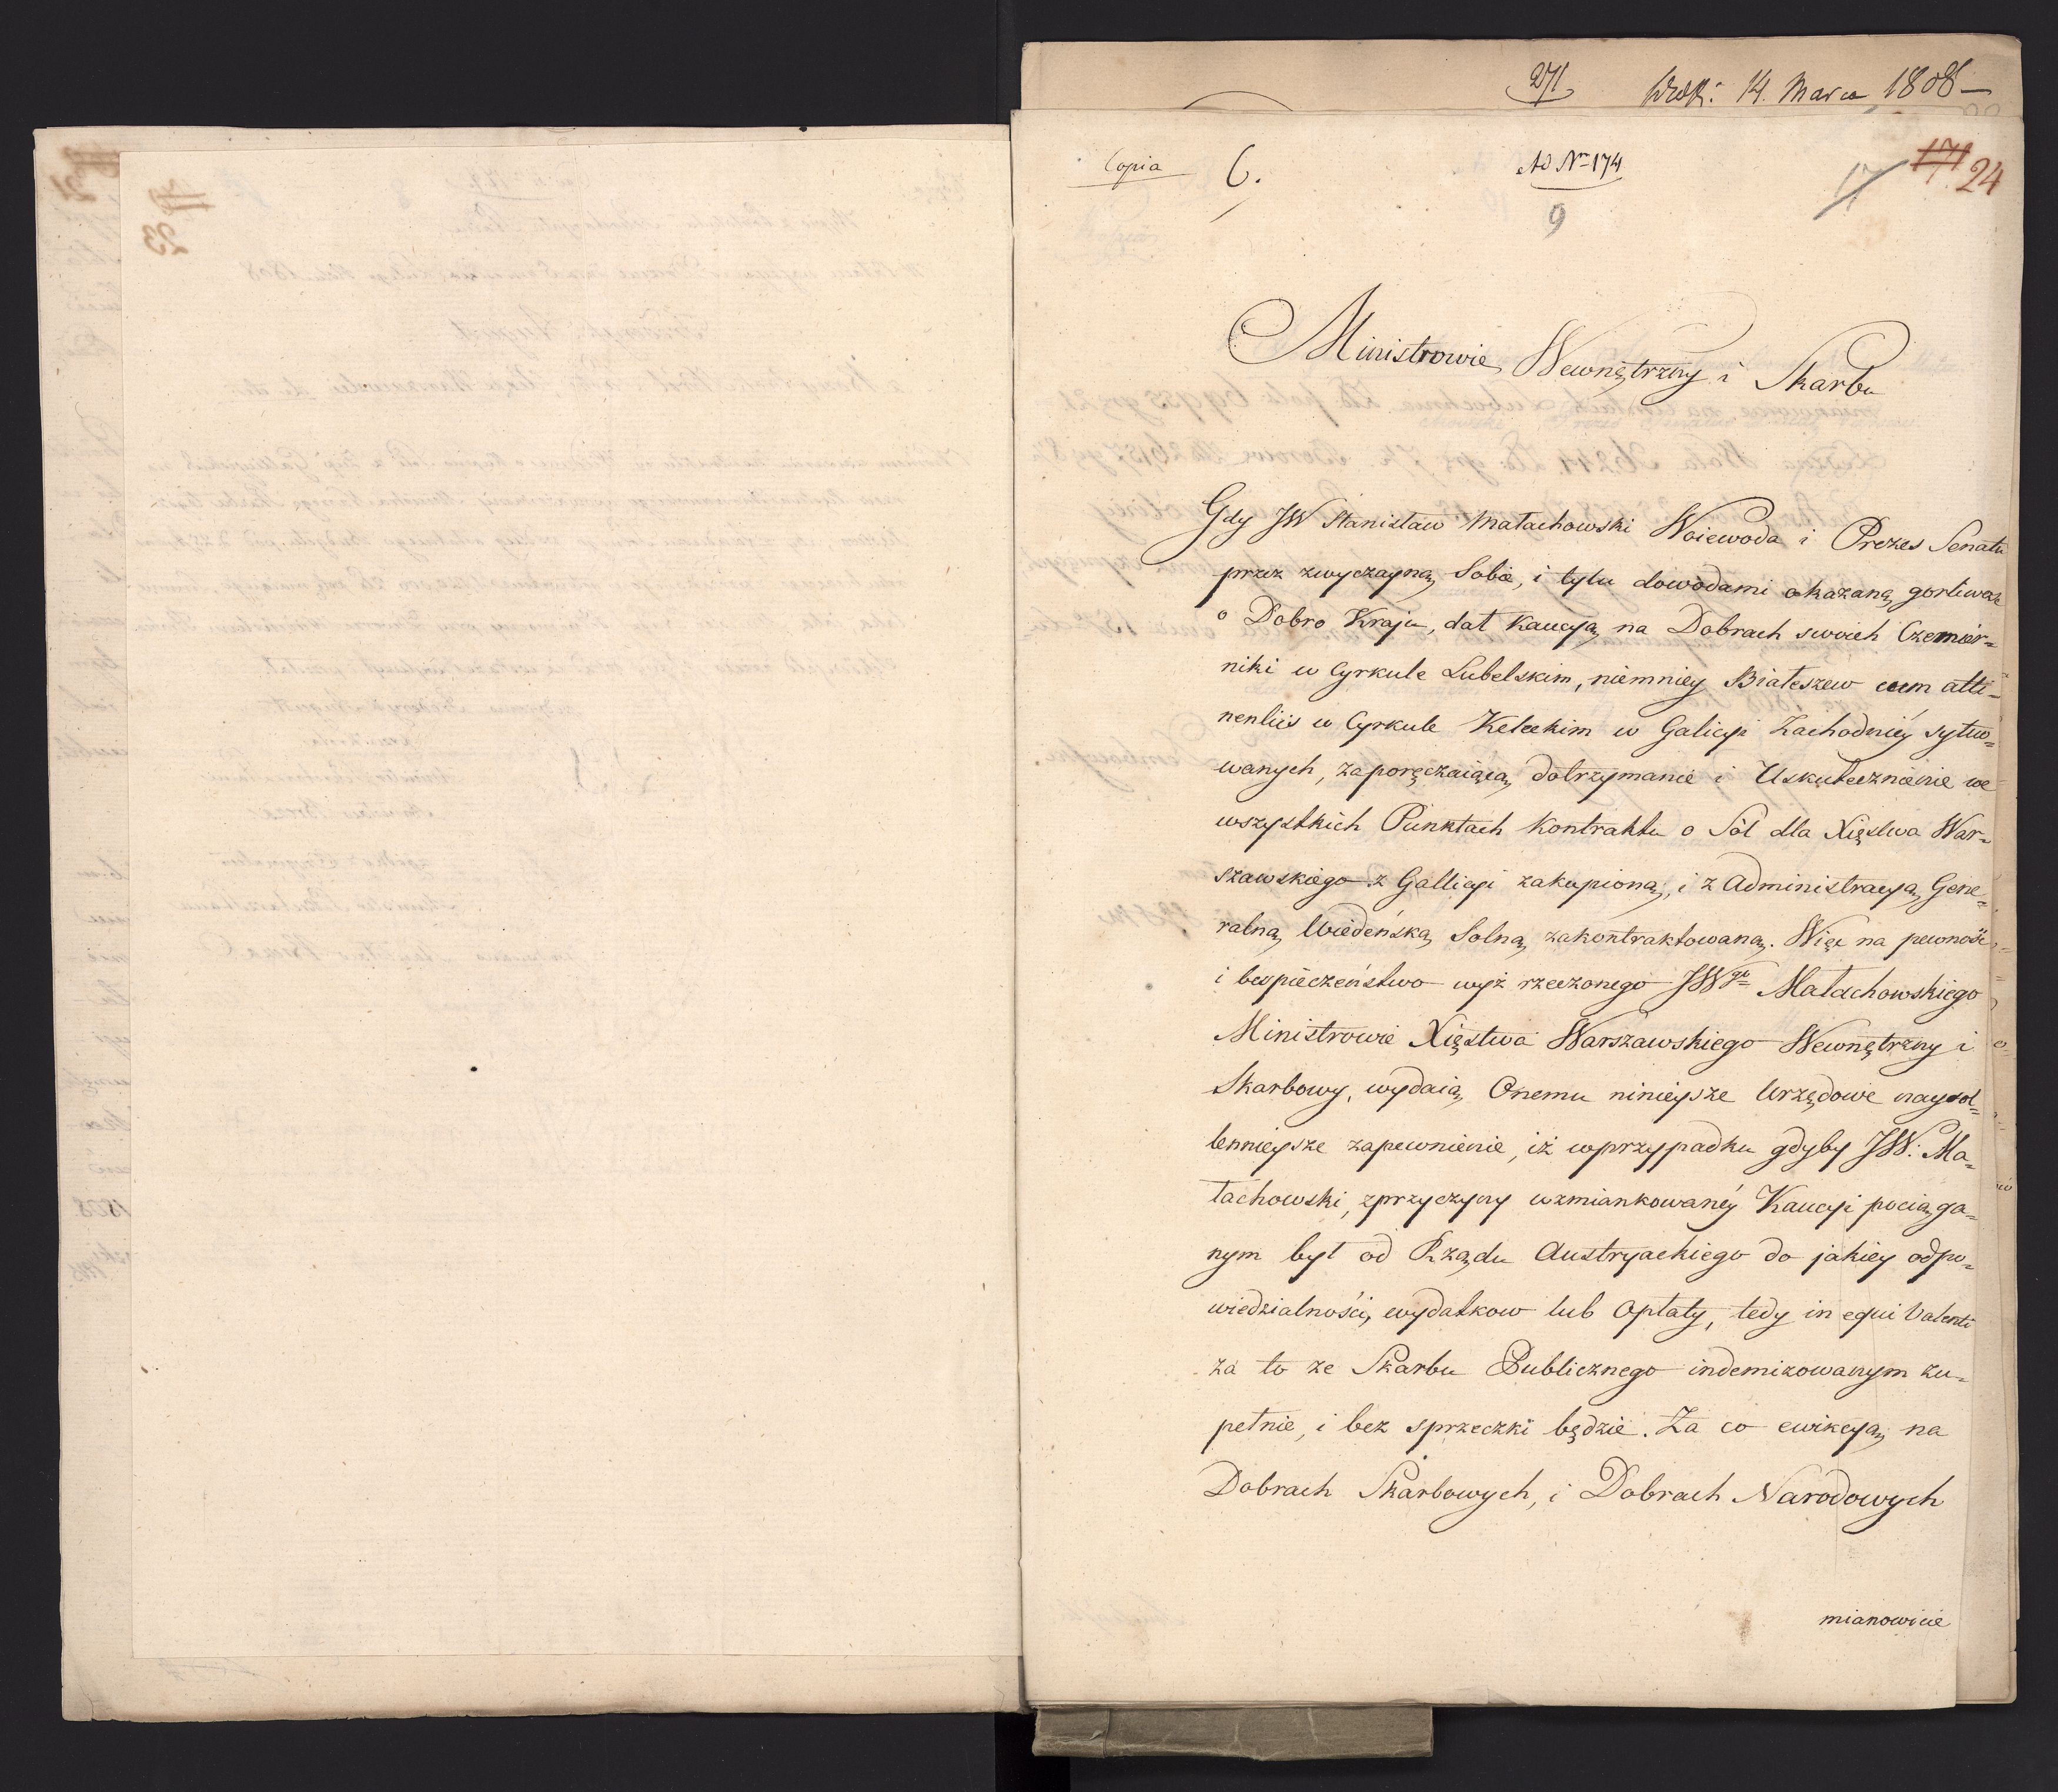 271 14. Marca 1808
Copia C. Ad Nr 174 17 171 24
9
Ministrowie Wewnętrzny i Skarbu
Gdy JW Stanisław Małachowski Woiewoda i Prezes Senatu
przez zwyczayną Sobie, i tylu dowodami okazaną gorliwość
o Dobro Kraju, dał Kaucyą na Dobrach swoich Czemier=
niki w Cyrkule Lubelskim, niemniey Białeszew cum atti=
nentiis w Cyrkule Keleckim w Galicyi Zachodniéy sytuo=
wanych, zaporęczaiącą dotrzymanie i Uskutecznienie we
wszystkich Punktach Kontraktu o Sól dla Xięstwa War=
szawskiego z Gallicyi zakupioną, i z Administracyą Gene=
ralną Wiedeńską Solną zakontraktowaną. Więc na pewność
i bespieczeństwo wyż rzeczonego JWgo Małachowskiego
Ministrowie Xięstwa Warszawskiego Wewnętrzny i
Skarbowy, wydaią Onemu ninieysze Urzędowe naysol=
lennieysze zapewnienie, iż wprzypadku gdyby JW: Ma=
łachowski, zprzyczyny wzmiankowanéy Kaucyi pociąga=
nym był od Rządu Austryackiego do jakiéy odpo=
wiedzialności, wydatkow lub Opłaty, tedy in equi Valenti
za to ze Skarbu Publicznego indemizowanym zu=
pełnie, i bez sprzeczki będzie. Za co ewikcyą na
Dobrach Skarbowych, i Dobrach Narodowych
mianowicie
23
21